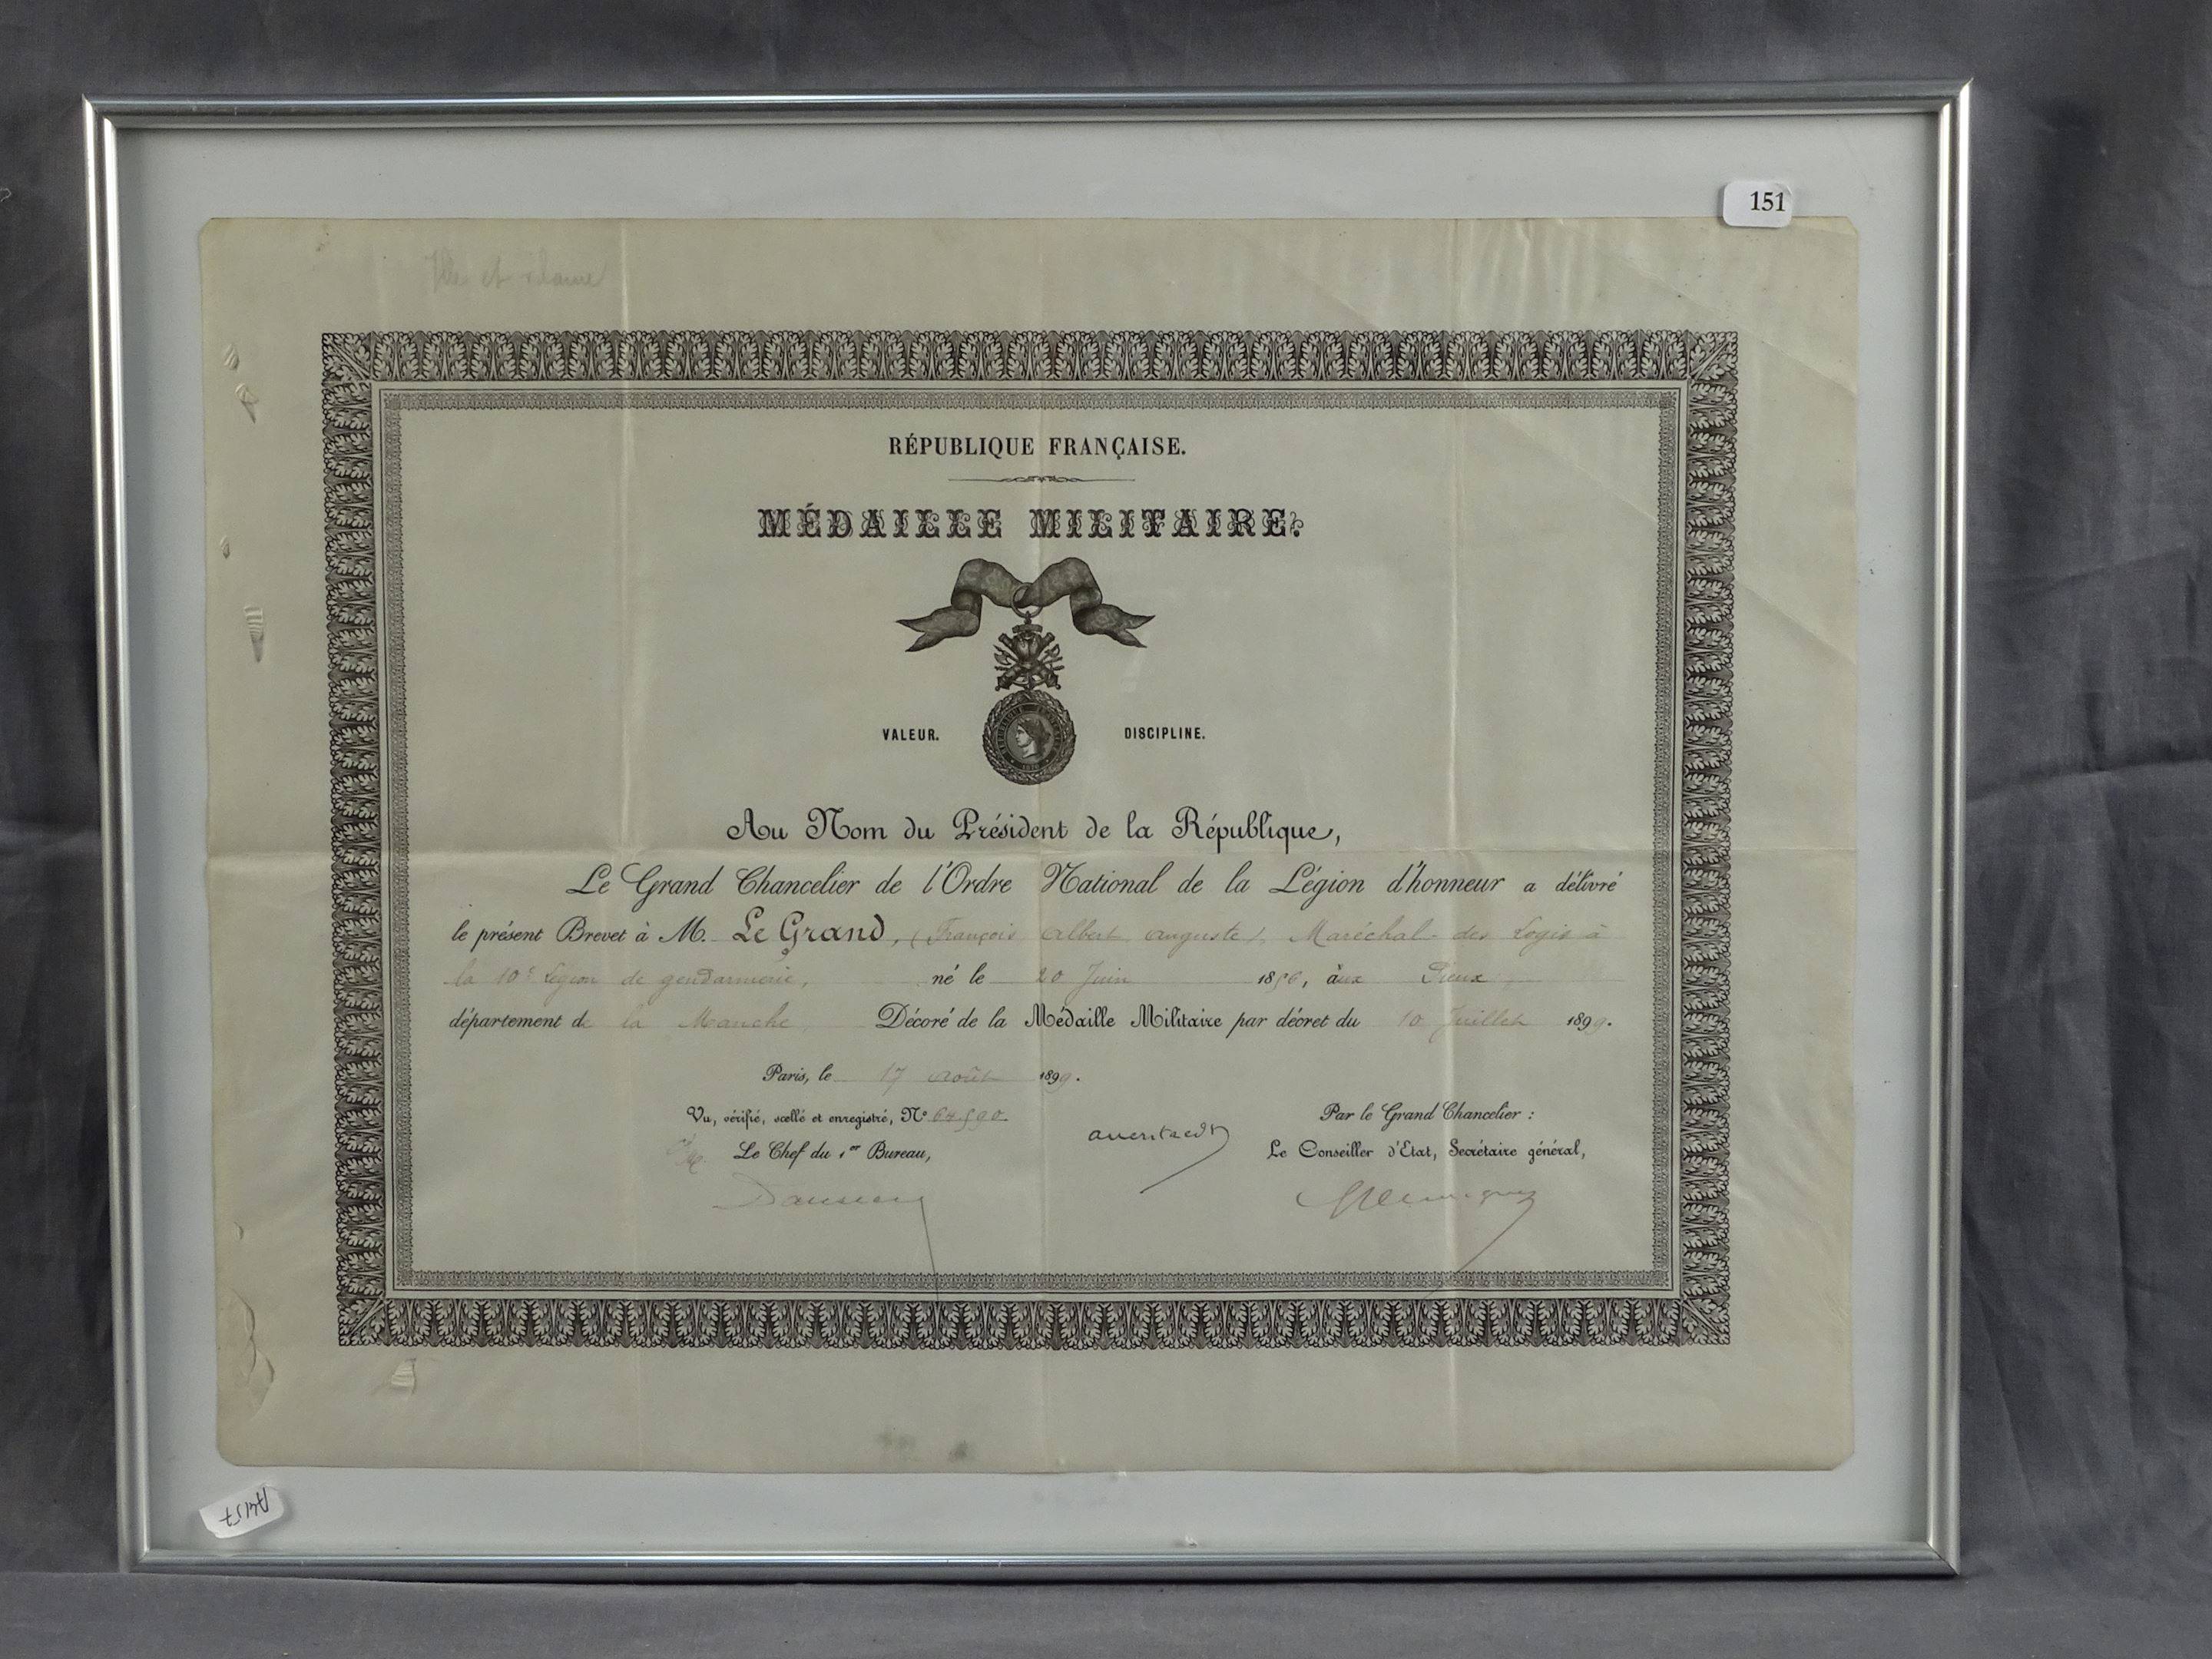 151
Ille et Vilaine
RÉPUBLIQUE FRANÇAISE.
MÉDAILLE MILITAIRE.
VALEUR. DISCIPLINE.
Au Nom du Président de la République,
Le Grand Chancelier de l'Ordre National de la Légion d'honneur a délivré
le présent Brevet à M. Le Grand, (François Albert Auguste), Maréchal des Logis à
la 10e Légion de gendarmerie, né le 20 Juin 1856, aux Pieux
département de la Manche Décoré de la Médaille Militaire par décret du 10 Juillet 1899.
Paris, le 17 Août 1899.
Vu, vérifié, scellé et enregistré, No 64.590. Par le Grand Chancelier :
Le Chef du 1er Bureau, Auerstaedt Le Conseiller d'État, Secrétaire général,